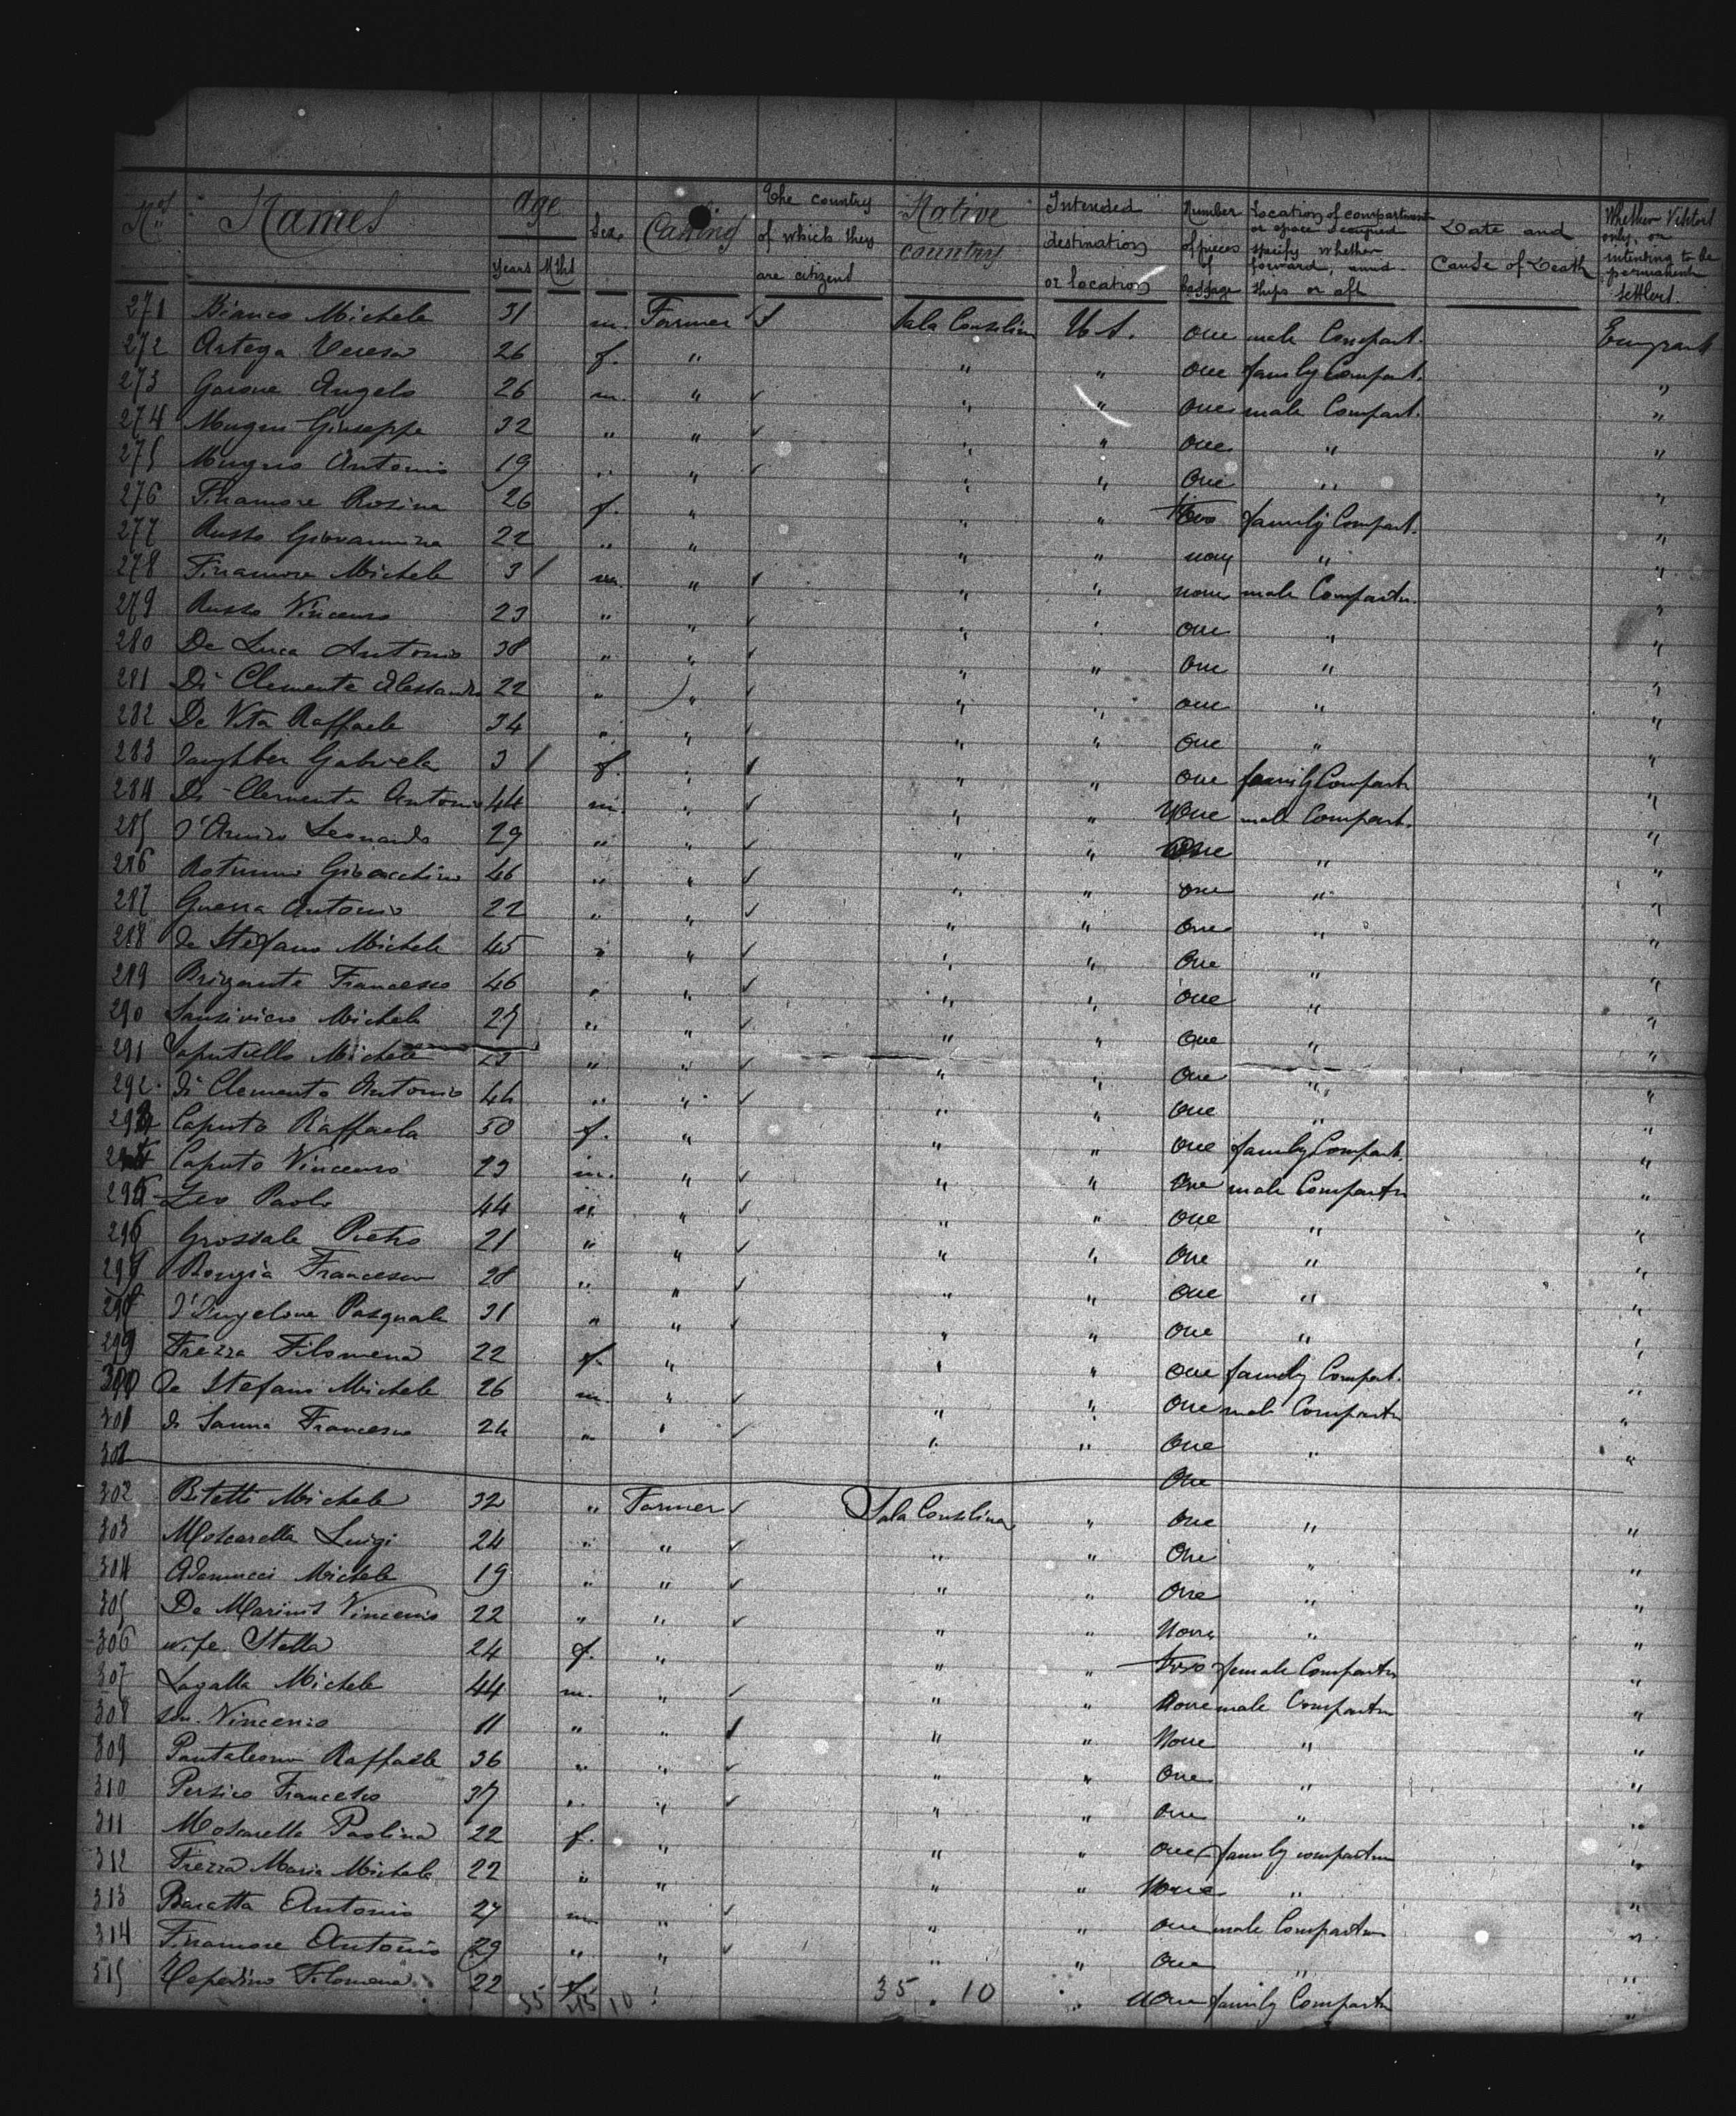 Nos Names Age Years Mths Sex Calling The country of which they are citizens Native country Intended destination or location Number of pieces of baggage Location of compartment or space occupied specify whether forward, amid ships or aft Date and Cause of Death Whether Visitors only, or intending to be permanent settlers
271 Bianco Michele 31 m. Farmer Sala Consilina U.S. one male Compart. Emigrant
272 Teresa 26 f. " " " one family Compart. "
273 Angelo 26 m. " " " one male Compart. "
274 Giuseppe 32 " " " " one " "
275 Antonio 19 " " " " One " "
276 Finamore Rosina 26 f. " " " two family Compart. "
277 Russo Giovannina 22 " " " " " "
278 Finamore Michele 3 m. " " " none male Compartm. "
279 Russo Vincenzo 23 " " " " one " "
280 De Luca Antonio 38 " " " " one " "
281 Di Clemente Alessandro 22 " " " " one " "
282 De Vita Raffaele 34 " " " " one " "
283 daughter Gabriela 3 f. " " " one family Compartm "
284 Di Clemente Antonio 44 m. " " " None male Compart. "
285 Leonardo 29 " " " " "
286 Gioacchino 46 " " " " one " "
287 Guerra Antonio 22 " " " " one " "
288 de Stefano Michele 45 " " " " One " "
289 Brigante Francesco 46 " " " " one " "
290 Michele " " " " One " "
291 Caputiello Michele 23 " " " " One " "
292 di Clemente Antonio 44 " " " " One " "
293 Caputo Raffaela 50 f. " " " one family Compart. "
294 Caputo Vincenzo 23 m. " " " One male Compartm "
295 Leo Paolo 44 " " " " One " "
296 Pietro 21 " " " " One " "
297 Francesco 28 " " " " One " "
298 D'Angelone Pasquale 31 " " " " One " "
299 Frezza Filomena 22 f. " " " One family Compart. "
300 de Stefano Michele 26 m. " " " One male Compartm "
301 di Sanna Francesco 24 " " " " One " "
302 One
302 Bitetti Michele 32 " Farmer Sala Consilina " One " "
303 Moscarella Luigi 24 " " " " One " "
304 Adamucci Michele 19 " " " " One " "
305 De Marinis Vincenzo 22 " " " " None " "
306 wife Stella 24 f. " " " two female Compartm "
307 Lagatta Michele 44 m. " " " None male Compartm "
308 son Vincenzo 11 " " " " None " "
309 Raffaele 36 " " " " One " "
310 Persico Francesco 37 " " " " One " "
311 Moscarella Paolina 22 f. " " " One family compartm "
312 Frezza Maria Michele 22 " " " " None " "
313 Antonio 27 m. " " " one male Compartm "
314 Finamore Antonio 29 " " " " One " "
315 Filomena 22 f. " " None family Compartm "
35 10 35. 10